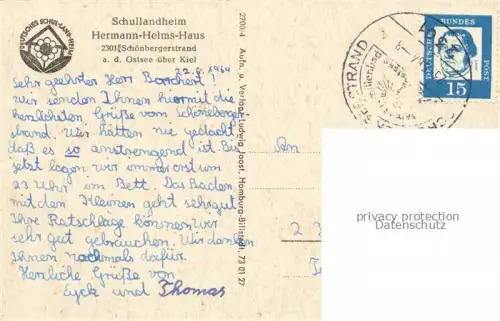 DEUTSCHES SCHUL-LAND-HEIM
Schullandheim
Hermann-Helms-Haus
2301 Schönbergerstrand
a. d. Ostsee über Kiel
22.8.1964
Sehr geehrter Herr Borchert
Wir senden Ihnen hiermit die
herzlichsten Grüße vom Schöneberger
strand. Wir hätten nie gedacht,
daß es so anstrengend ist. Bis
jetzt lagen wir immer erst um
23 Uhr im Bett. Das Baden
mit den Kleinen geht sehr gut
Ihre Ratschläge können wir
sehr gut gebrauchen. Wir danken
Ihnen nochmals dafür.
Herzliche Grüße von
Eyck und Thomas
2700/4 Aufn. u. Verlag Ludwig Joost, Hamburg-Billstedt, 73 01 27
An
STRAND
DEUTSCHE BUNDES POST
15
privacy protection
Datenschutz
2